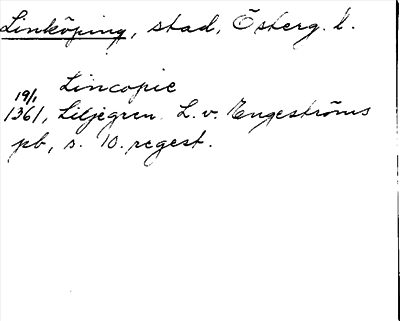 Linköping, stad, Österg. l.
Lincopie
19/1
1361, Liljegren L. v. Engeströms
pb, s. 10. regest.